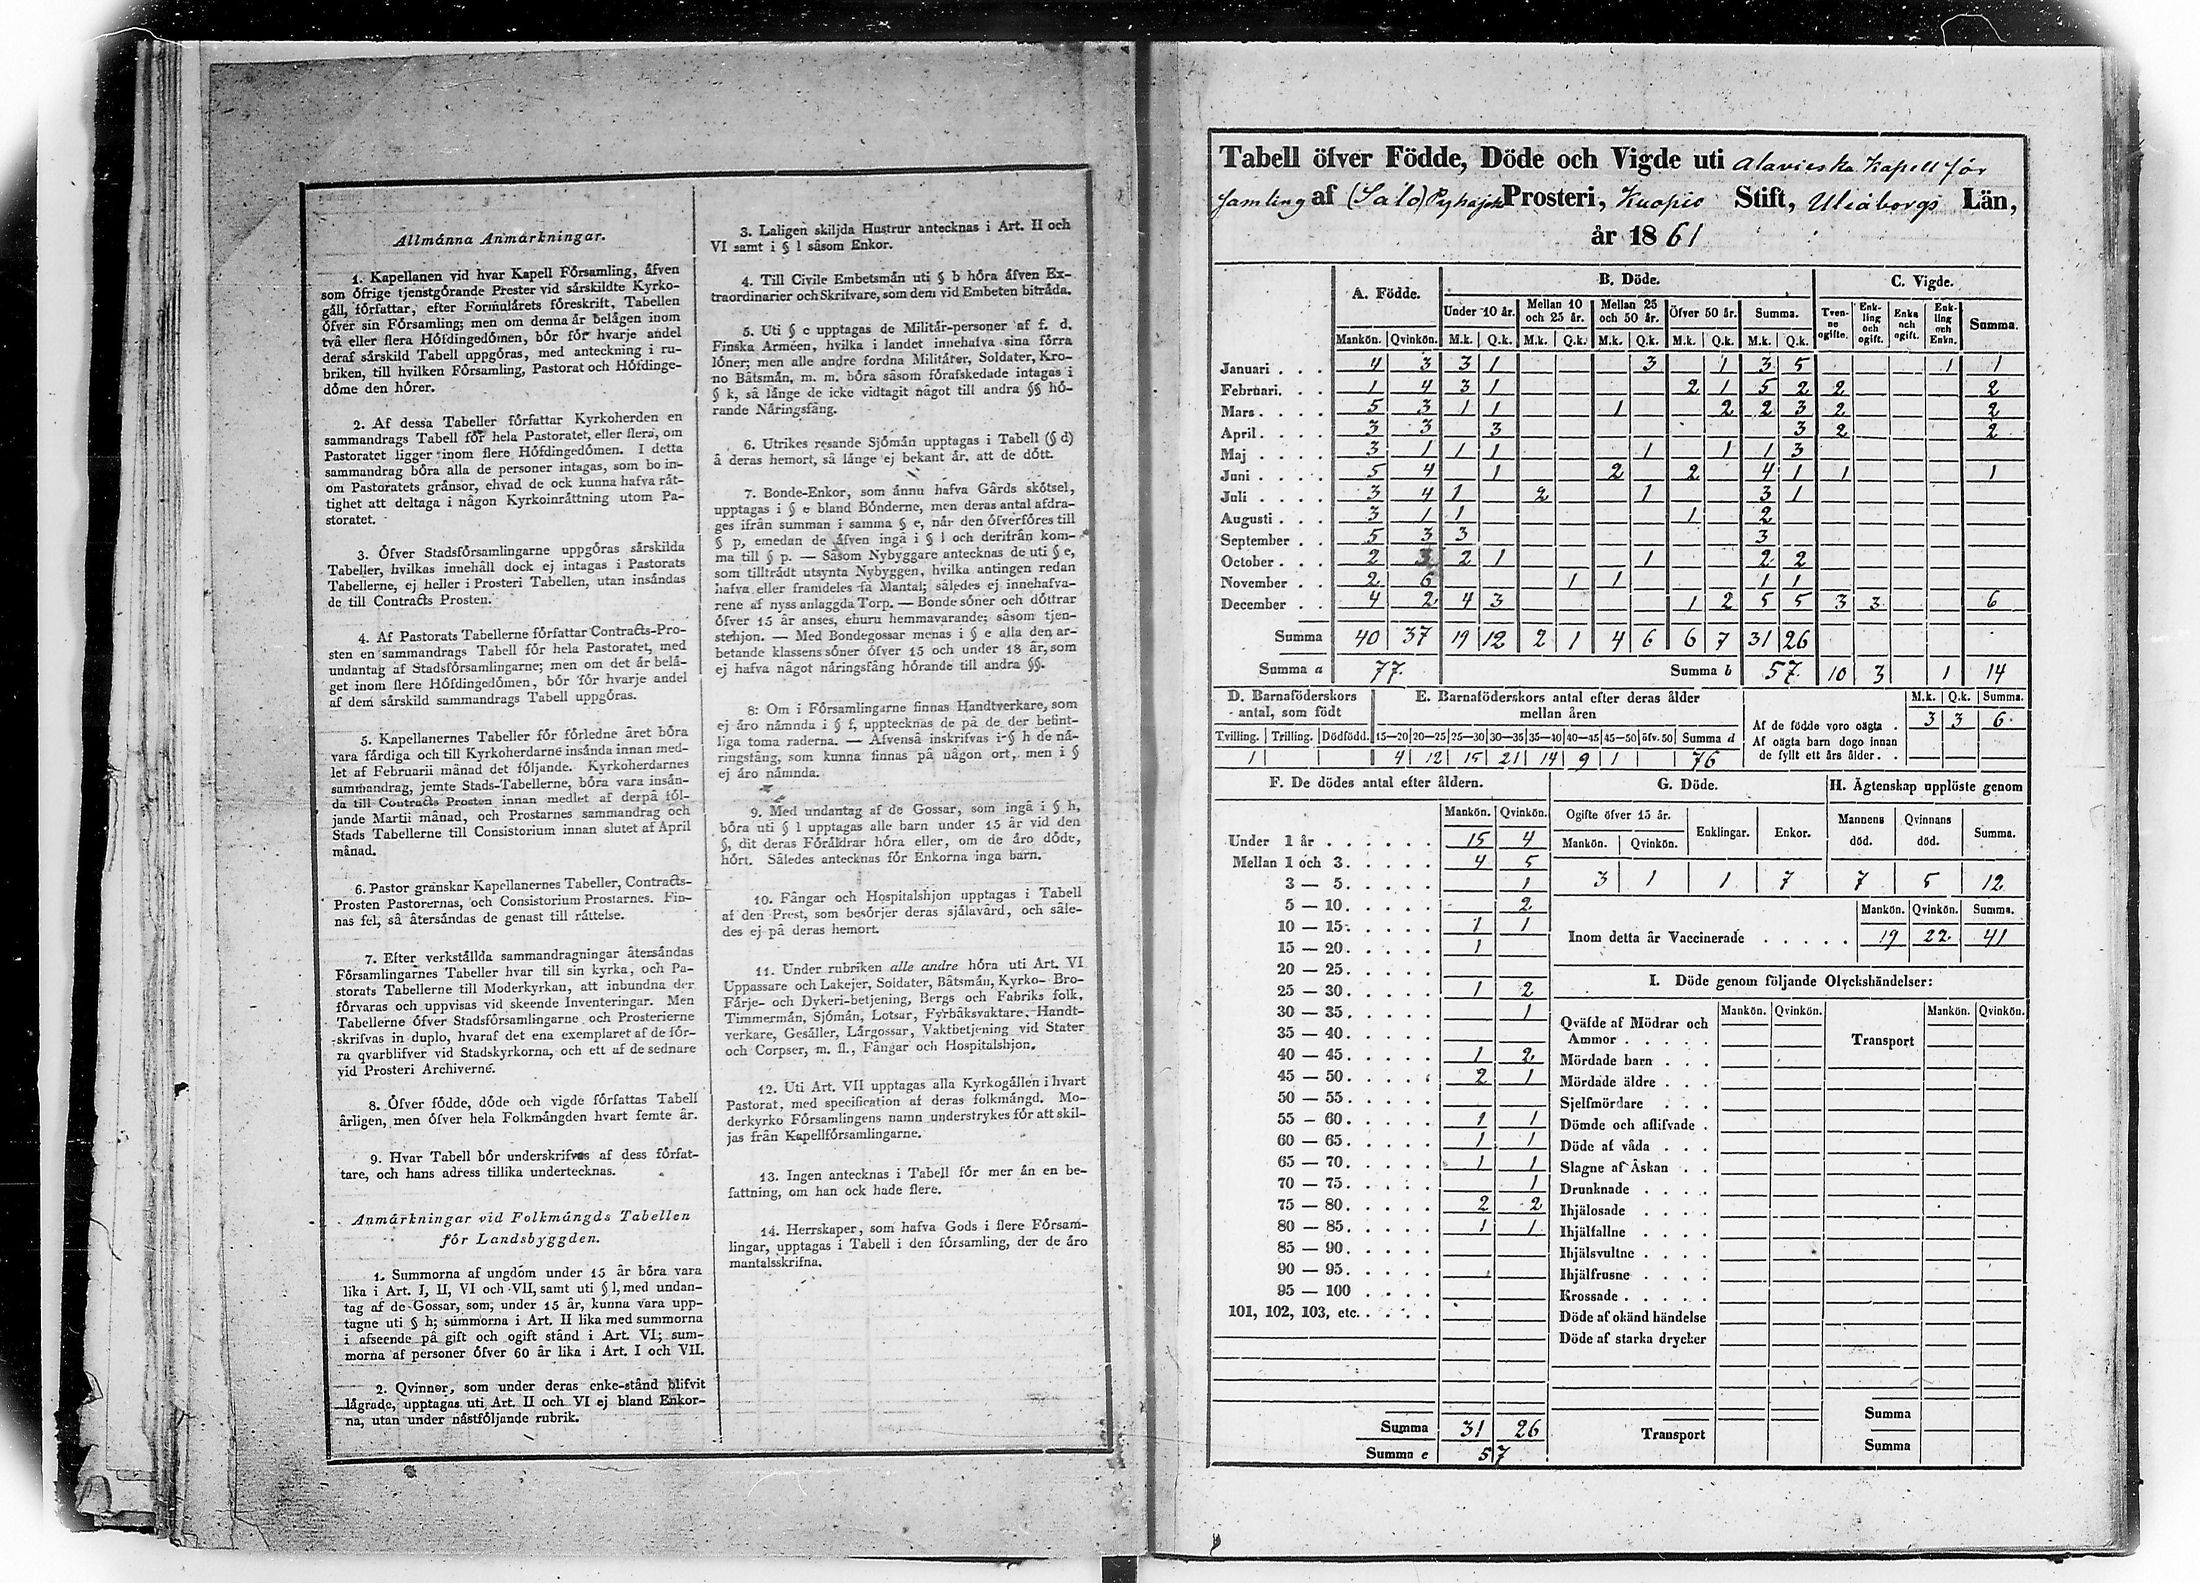 Allmánna Anmárkningar.
1. Kapellanen vid hvar Kapell Fórsamling, áfven
som ófrige tjenstgórande Prester vid sárskildte Kyrko-
gáll, fórfattar, efter Formulárets fóreskrift, Tabellen
ófver sin Fórsamling; men om denna år belågen inom
två eller flera Hófdingedómen, bór fór hvarje andel
deraf sárskild Tabell uppgóras, med anteckning i ru-
briken, till hvilken Fórsamling, Pastorat och Hófdinge-
dóme den hórer.
2. Af dessa Tabeller fórfattar Kyrkoherden en
sammandrags Tabell fór hela Pastoratet, eller flera, om
Pastoratet ligger inom flere Hófdingedómen. I detta
sammandrag bóra alla de personer intagas, som bo in-
om Pastoratets gránsor, ehvad de ock kunna hafva rát-
tighet att deltaga i någon Kyrkoinráttning utom Pa-
storatet.
3. Ófver Stadsfórsamlingarne uppgóras sárskilda
Tabeller, hvilkas innehåll dock ej intagas i Pastorats
Tabellerne, ej heller i Prosteri Tabellen, utan insándas
de till Contracts Prosten.
4. Af Pastorats Tabellerne fórfattar Contracts-Pro-
sten en sammandrags Tabell fór hela Pastoratet, med
undantag af Stadsfórsamlingarne; men om det år belá-
get inom flere Hófdingedómen, bór fór hvarje andel
af dem sárskild sammandrags Tabell uppgóras.
5. Kapellanernes Tabeller fór fórledne året bóra
vara fárdiga och till Kyrkoherdarne insánda innan med-
let af Februarii månad det fóljande. Kyrkoherdarnes
sammandrag, jemte Stads-Tabellerne, bóra vara insán-
da till Contracts Prosten innan medlet af derpå fól-
jande Martii månad, och Prostarnes sammandrag och
Stads Tabellerne till Consistorium innan slutet af April
månad.
6. Pastor granskar Kapellanernes Tabeller, Contracts-
Prosten Pastorernas, och Consistorium Prostarnes. Fin-
nas fel, så återsándas de genast till ráttelse.
7. Efter verkstállda sammandragningar återsándas
Fórsamlingarnes Tabeller hvar till sin kyrka, och Pa-
storats Tabellerne till Moderkyrkan, att inbundna der
fórvaras och uppvisas vid skeende Inventeringar. Men
Tabellerne ófver Stadsfórsamlingarne och Prosterierne
skrifvas in duplo, hvaraf det ena exemplaret af de fór-
ra qvarblifver vid Stadskyrkorna, och ett af de sednare
vid Prosteri Archiverne.
8. Ófver fódde, dóde och vigde fórfattas Tabell
årligen, men ófver hela Folkmångden hvart femte år.
9. Hvar Tabell bór underskrifvas af dess fórfat-
tare, och hans adress tillika undertecknas.
Anmárkningar vid Folkmångds Tabellen
fór Landsbyggden.
1. Summorna af ungdom under 15 år bóra vara
lika i Art. I, II, VI och VII, samt uti § l, med undan-
tag af de Gossar, som, under 15 år, kunna vara upp-
tagne uti § h; summorna i Art. II lika med summorna
i afseende på gift och ogift stånd i Art. VI; sum-
morna af personer ófver 60 år lika i Art. I och VII.
2. Qvinnor, som under deras enke-stånd blifvit
lágrade, upptagas uti Art. II och VI ej bland Enkor-
na, utan under nástfóljande rubrik.
3. Laligen skiljda Hustrur antecknas i Art. II och
VI samt i § l såsom Enkor.
4. Till Civile Embetsmán uti § b hóra áfven Ex-
traordinarier och Skrifvare, som dem vid Embeten bitráda.
5. Uti § c upptagas de Militár-personer af f. d.
Finska Arméen, hvilka i landet innehafva sina fórra
lóner; men alle andre fordna Militárer, Soldater, Kro-
no Båtsmán, m. m. bóra såsom fórafskedade intagas i
§ k, så lánge de icke vidtagit något till andra §§ hó-
rande Náringsfång.
6. Utrikes resande Sjómán upptagas i Tabell (§ d)
å deras hemort, så lánge ej bekant år, att de dótt.
7. Bonde-Enkor, som ánnu hafva Gårds skótsel,
upptagas i § e bland Bónderne, men deras antal afdra-
ges ifrån summan i samma § e, når den ófverfóres till
§ p, emedan de áfven ingå i § l och derifrån kom-
ma till § p. — Såsom Nybyggare antecknas de uti § e,
som tilltrádt utsynta Nybyggen, hvilka antingen redan
hafva eller framdeles få Mantal; således ej innehafva-
rene af nyss anlaggda Torp. — Bonde sóner och dóttrar
ófver 15 år anses, ehuru hemmavarande, såsom tjen-
stehjon. — Med Bondegossar menas i § e alla den ar-
betande klassens sóner ófver 15 och under 18 år, som
ej hafva något náringsfång hórande till andra §§.
8: Om i Fórsamlingarne finnas Handtverkare, som
ej áro námnda i § f, upptecknas de på de der befint-
liga toma raderna. — Áfvenså inskrifvas i § h de ná-
ringsfång, som kunna finnas på någon ort, men i §
ej áro námnda.
9. Med undantag af de Gossar, som ingå i § h,
bóra uti § l upptagas alle barn under 15 år vid den
§, dit deras Fóráldrar hóra eller, om de áro dóde,
hórt. Således antecknas fór Enkorna inga barn.
10. Fångar och Hospitalshjon upptagas i Tabell
af den Prest, som besórjer deras sjálavård, och såle-
des ej på deras hemort.
11. Under rubriken alle andre hóra uti Art. VI
Uppassare och Lakejer, Soldater, Båtsmán, Kyrko- Bro-
Fårje- och Dykeri-betjening, Bergs och Fabriks folk,
Timmermán, Sjómán, Lotsar, Fyrbåksvaktare. Handt-
verkare, Gesáller, Lårgossar, Vaktbetjening vid Stater
och Corpser, m. fl., Fångar och Hospitalshjon.
12. Uti Art. VII upptagas alla Kyrkogállen i hvart
Pastorat, med specification af deras folkmángd. Mo-
derkyrko Fórsamlingens namn understrykes fór att skil-
jas från Kapellfórsamlingarne.
13. Ingen antecknas i Tabell fór mer án en be-
fattning, om han ock hade flere.
14. Herrskaper, som hafva Gods i flere Fórsam-
lingar, upptagas i Tabell i den fórsamling, der de áro
mantalsskrifna.
Tabell öfver Födde, Döde och Vigde uti Alavieska Kapell för
samling af (Salo) Pyhajoki Prosteri, Kuopio Stift, Uleåborgs Län,
år 1861
A. Födde. B. Döde. C. Vigde.
Under 10 år. Mellan 10 och 25 år. Mellan 25 och 50 år. Öfver 50 år. Summa. Tven-ne ogifte. Enk-ling och ogift. Enka och ogift. Enk-ling och Enka. Summa.
Mankön. Qvinkön. M.k. Q.k. M.k. Q.k. M.k. Q.k. M.k. Q.k. M.k. Q.k.
Januari . . . 4 3 3 1 3 1 3 5 1 1
Februari. . . 1 4 3 1 2 1 5 2 2 2
Mars . . . . 5 3 1 1 1 2 2 3 2 2
April . . . . 3 3 3 3 2 2
Maj . . . . 3 1 1 1 1 1 1 3
Juni . . . . 5 4 1 2 2 4 1 1 1
Juli . . . . 3 4 1 2 1 3 1
Augusti . . . 3 1 1 1 2
September . . 5 3 3 3
October . . . 2 3 2 1 1 2 2
November . . 2 6 1 1 1 1
December . . 4 2 4 3 1 2 5 5 3 3 6
Summa 40 37 19 12 2 1 4 6 6 7 31 26
Summa a 77. Summa b 57. 10 3 1 14
D. Barnaföderskors antal, som födt
Tvilling. Trilling. Dödfödd.
1
E. Barnaföderskors antal efter deras ålder
mellan åren
15—20 20—25 25—30 30—35 35—40 40—45 45—50 öfv. 50 Summa d
4 12 15 21 14 9 1 76
M.k. Q.k. Summa.
Af de födde voro oägta . 3 3 6.
Af oägta barn dogo innan
de fyllt ett års ålder . .
F. De dödes antal efter åldern.
Mankön. Qvinkön.
Under 1 år . . . . . . 15 4
Mellan 1 och 3. . . . . 4 5
3 — 5. . . . . 1
5 — 10. . . . . 2
10 — 15. . . . . 1 1
15 — 20. . . . . 1
20 — 25. . . . .
25 — 30. . . . . 1 2
30 — 35. . . . . 1
35 — 40. . . . .
40 — 45. . . . . 1 2
45 — 50. . . . . 2 1
50 — 55. . . . .
55 — 60. . . . . 1 1
60 — 65. . . . . 1 1
65 — 70. . . . . 1 1
70 — 75. . . . . 1
75 — 80. . . . . 2 2
80 — 85. . . . . 1 1
85 — 90. . . . .
90 — 95. . . . .
95 — 100 . . . .
101, 102, 103, etc. . . . .
Summa 31 26
Summa e 57
G. Döde.
Ogifte öfver 15 år. Enklingar. Enkor.
Mankön. Qvinkön.
3 1 1 7
H. Ägtenskap upplöste genom
Mannens död. Qvinnans död. Summa.
7 5 12
Mankön. Qvinkön. Summa.
Inom detta år Vaccinerade . . . . . 19 22 41
I. Döde genom följande Olyckshändelser:
Mankön. Qvinkön. Mankön. Qvinkön.
Qväfde af Mödrar och
Ammor . . . . . Transport
Mördade barn . . .
Mördade äldre . . .
Sjelfmördare . . .
Dömde och aflifvade .
Döde af våda . . .
Slagne af Åskan . .
Drunknade . . . .
Ihjälosade . . . .
Ihjälfallne . . . .
Ihjälsvultne . . . .
Ihjälfrusne . . . .
Krossade . . . . .
Döde af okänd händelse
Döde af starka drycker
Summa
Transport
Summa